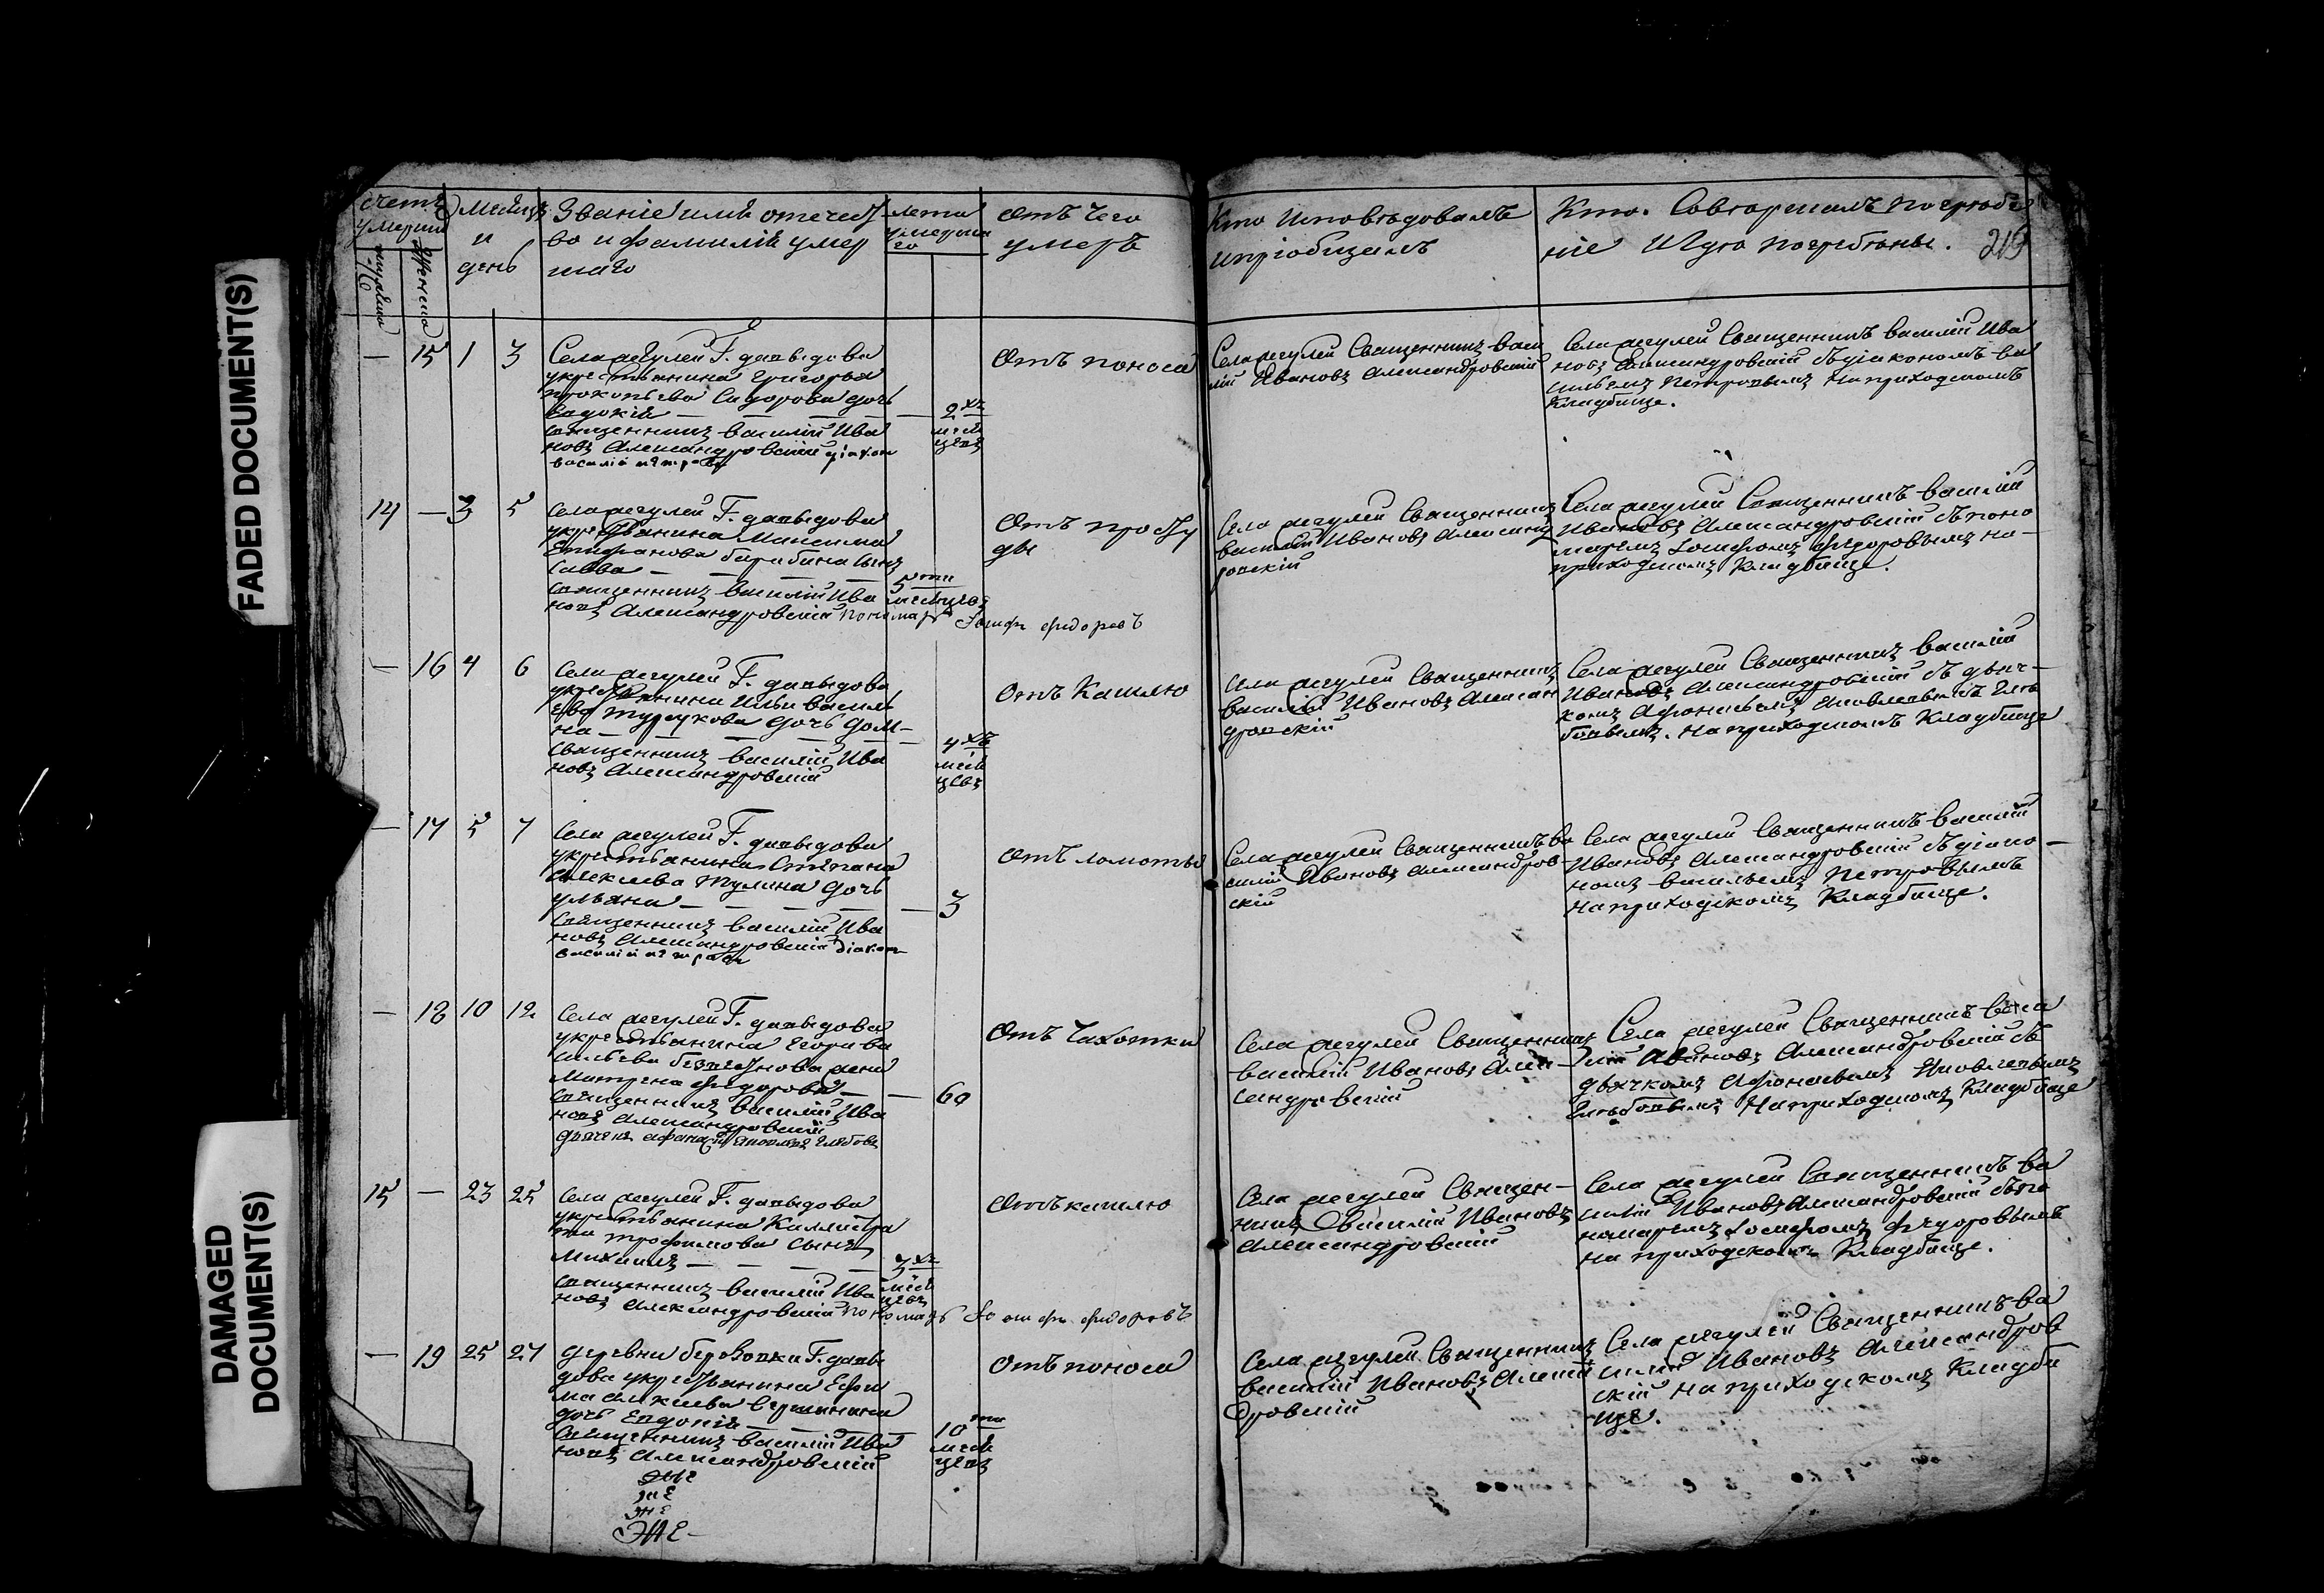 FADED DOCUMENT(S)
DAMAGED
DOCUMENT(S)
Счетъ
умерши
мужеска
женска
Месяцъ
и
день
Званіе имя отечест
во и фамилія умер
шаго
лета
умерша
го
отъ чего
умеръ
Кто исповедовалъ
и пріобщалъ
Кто. Совершалъ погребе
ніе И где погребены. 219
— 15 1 3
Села Г. давыдова
крестьянина Григорья
прокопьева Сидорова дочь
Евдокія — — — —
2 хъ
меся
цевъ
священникъ василій Ива
новъ Александровскій діакон
василій петровъ
отъ поноса
Села Священникъ васи
лій Ивановъ Александровскій
Села Священникъ василій Ива
новъ Александровскій съ діакономъ ва
сильемъ Петровымъ на приходскомъ
Кладбище.
14 — 3 5
Села Г. давыдова
крестьянина Максима
Епифанова сынъ
Савва — — — —
5 ти
месяцовъ
священникъ василій Ива
новъ Александровскій пономарь Іосифъ федоровъ
Отъ просту
ды
Села Священникъ
василій Ивановъ Александ
ровскій
Села Священникъ василій
Ивановъ Александровскій съ поно
маремъ Іосифомъ федоровымъ на
приходскомъ Кладбище.
— 16 4 6
Села Г. давыдова
крестьянина Ильи василь
ева дочь дом
на — — — —
4 хъ
меся
цевъ
Священникъ василій Ива
новъ Александровскій
Отъ Кашлю
Села Священникъ
василій Ивановъ Алексан
дровскій
Села Священникъ василій
Ивановъ Александровскій съ дьяч
комъ Афонасьемъ Яковлевымъ Глѣ
бовымъ. на приходскомъ Кладбище
— 17 5 7
Села Г. давыдова
крестьянина Степана
алексеева Тулина дочь
ульяна — — — — — 3
Священникъ василій Ива
новъ Александровскій діакон
василій петровъ
отъ ломотья
Села Священникъ ва
силій Ивановъ Александров
скій
Села Священникъ василій
Ивановъ Александровскій съ діако
номъ васильемъ Петровымъ
на приходскомъ Кладбище.
— 18 10 12
Села Г. давыдова
крестьянина Егора ва
сильева жена
Матрена федорова — — 60
Священникъ василій Ива
новъ Александровскій
дьячекъ афанасій яковлевъ глебовъ
Отъ Чахотки
Села Священникъ
василій Ивановъ Алек
сандровскій
Села Священникъ васи
лій Ивановъ Александровскій съ
дьячкомъ Афонасьемъ Яковлевымъ
Глѣбовымъ На приходскомъ Кладбище
15 — 23 25
Села Г. давыдова
крестьянина Каллистра
та трофимова сынъ
Михаилъ — — — —
хъ
меся
цевъ
священникъ василій Ива
новъ Александровскій пономарь Іосифъ федоровъ
Отъ кашлю
Села Священ
никъ Василій Ивановъ
Александровскій
Села Священникъ ва
силій Ивановъ Александровскій съ по
номаремъ Іосифомъ федоровымъ
на приходскомъ Кладбище.
— 19 25 27
деревни Г. давы
дова крестьянина Ефи
ма алексеева
дочь Евдокія — —
10 ти
меся
цевъ
Священникъ василій Ива
новъ Александровскій
Отъ поноса
Села Священникъ
василій Ивановъ Алексан
дровскій
Села Священникъ ва
силій Ивановъ Александров
скій на приходскомъ Кладби
ще.